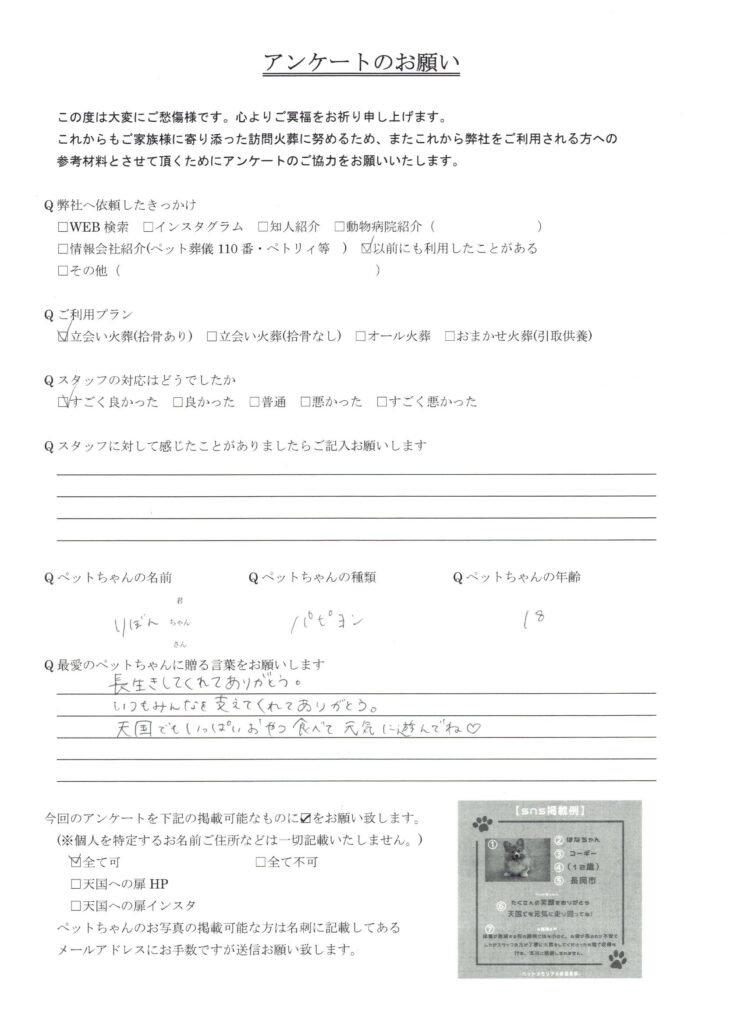 アンケートのお願い
この度は大変にご愁傷様です。心よりご冥福をお祈り申し上げます。
これからもご家族様に寄り添った訪問火葬に努めるため、またこれから弊社をご利用される方への
参考材料とさせて頂くためにアンケートのご協力をお願いいたします。
Q 弊社へ依頼したきっかけ
□WEB 検索 □インスタグラム □知人紹介 □動物病院紹介（ ）
□情報会社紹介(ペット葬儀 110 番・ペトリィ等 ) ☑以前にも利用したことがある
□その他（ ）
Q ご利用プラン
☑立会い火葬(拾骨あり) □立会い火葬(拾骨なし) □オール火葬 □おまかせ火葬(引取供養)
Q スタッフの対応はどうでしたか
☑すごく良かった □良かった □普通 □悪かった □すごく悪かった
Q スタッフに対して感じたことがありましたらご記入お願いします
Q ペットちゃんの名前 Q ペットちゃんの種類 Q ペットちゃんの年齢
君
りぼん ちゃん パピヨン 18
さん
Q 最愛のペットちゃんに贈る言葉をお願いします
長生きしてくれてありがとう。
いつもみんなを支えてくれてありがとう。
天国でもいっぱいおやつ食べて元気に遊んでね♡
今回のアンケートを下記の掲載可能なものに☑をお願い致します。
(※個人を特定するお名前ご住所などは一切記載いたしません。)
☑全て可 □全て不可
□天国への扉 HP
□天国への扉インスタ
ペットちゃんのお写真の掲載可能な方は名刺に記載してある
メールアドレスにお手数ですが送信お願い致します。
【sns掲載例】
① ② はなちゃん
③ コーギー
④ (12歳)
⑤ 長岡市
⑥ たくさんの笑顔をありがとう
天国でも元気に走り回ってね!
⑦